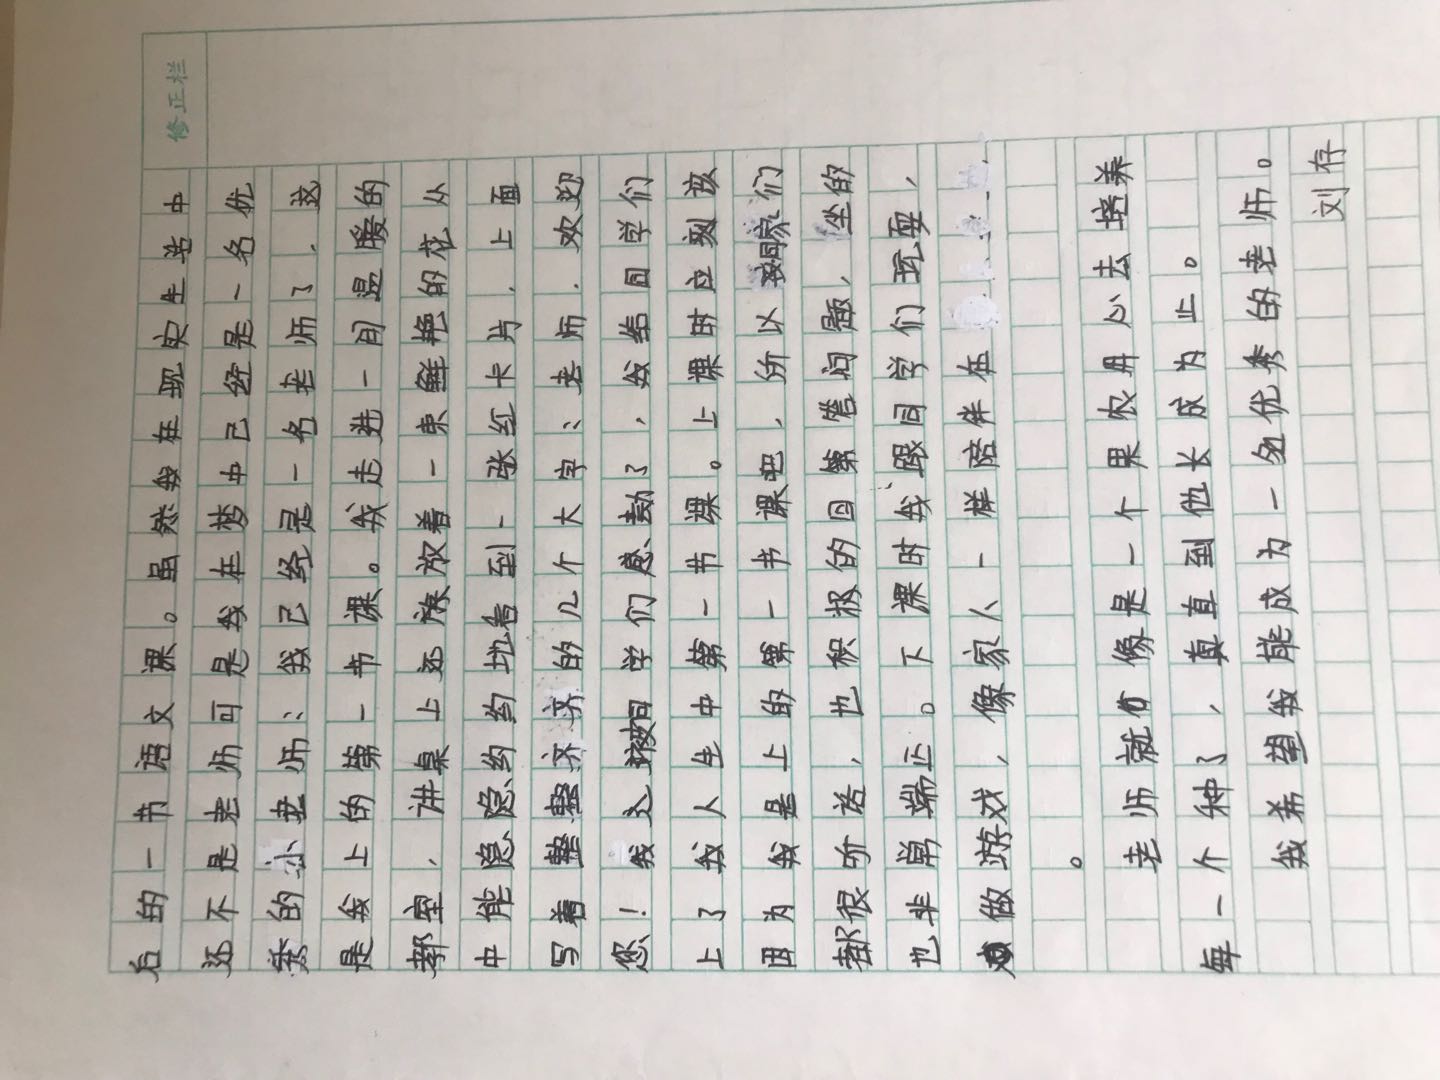 修正栏
后的一节语文课。虽然我在现实生活中
还不是老师可是我在梦中已经是一名优
秀的小老师：我已经是一名老师了，这
是我上的第一节课。我走进一间温暖的
教室，讲桌上还放着一束鲜艳的花从
中能隐隐约约地看到一张红卡片，上面
写着整整齐齐的几个大字：老师，欢迎
您！我被同学们感动了，我给同学们
上了我人生中第一节课。上课时应该
因为我是上的第一书课吧，所以同学们
都很听话，也积极的回答问题，坐的
也非常端正。下课时我跟同学们玩耍，
做游戏，像家人一样陪伴在
。
老师就像是一个果农用心去培养
每一个种了，真直到他长成为止。
我希望我能成为一名优秀的老师。
刘存